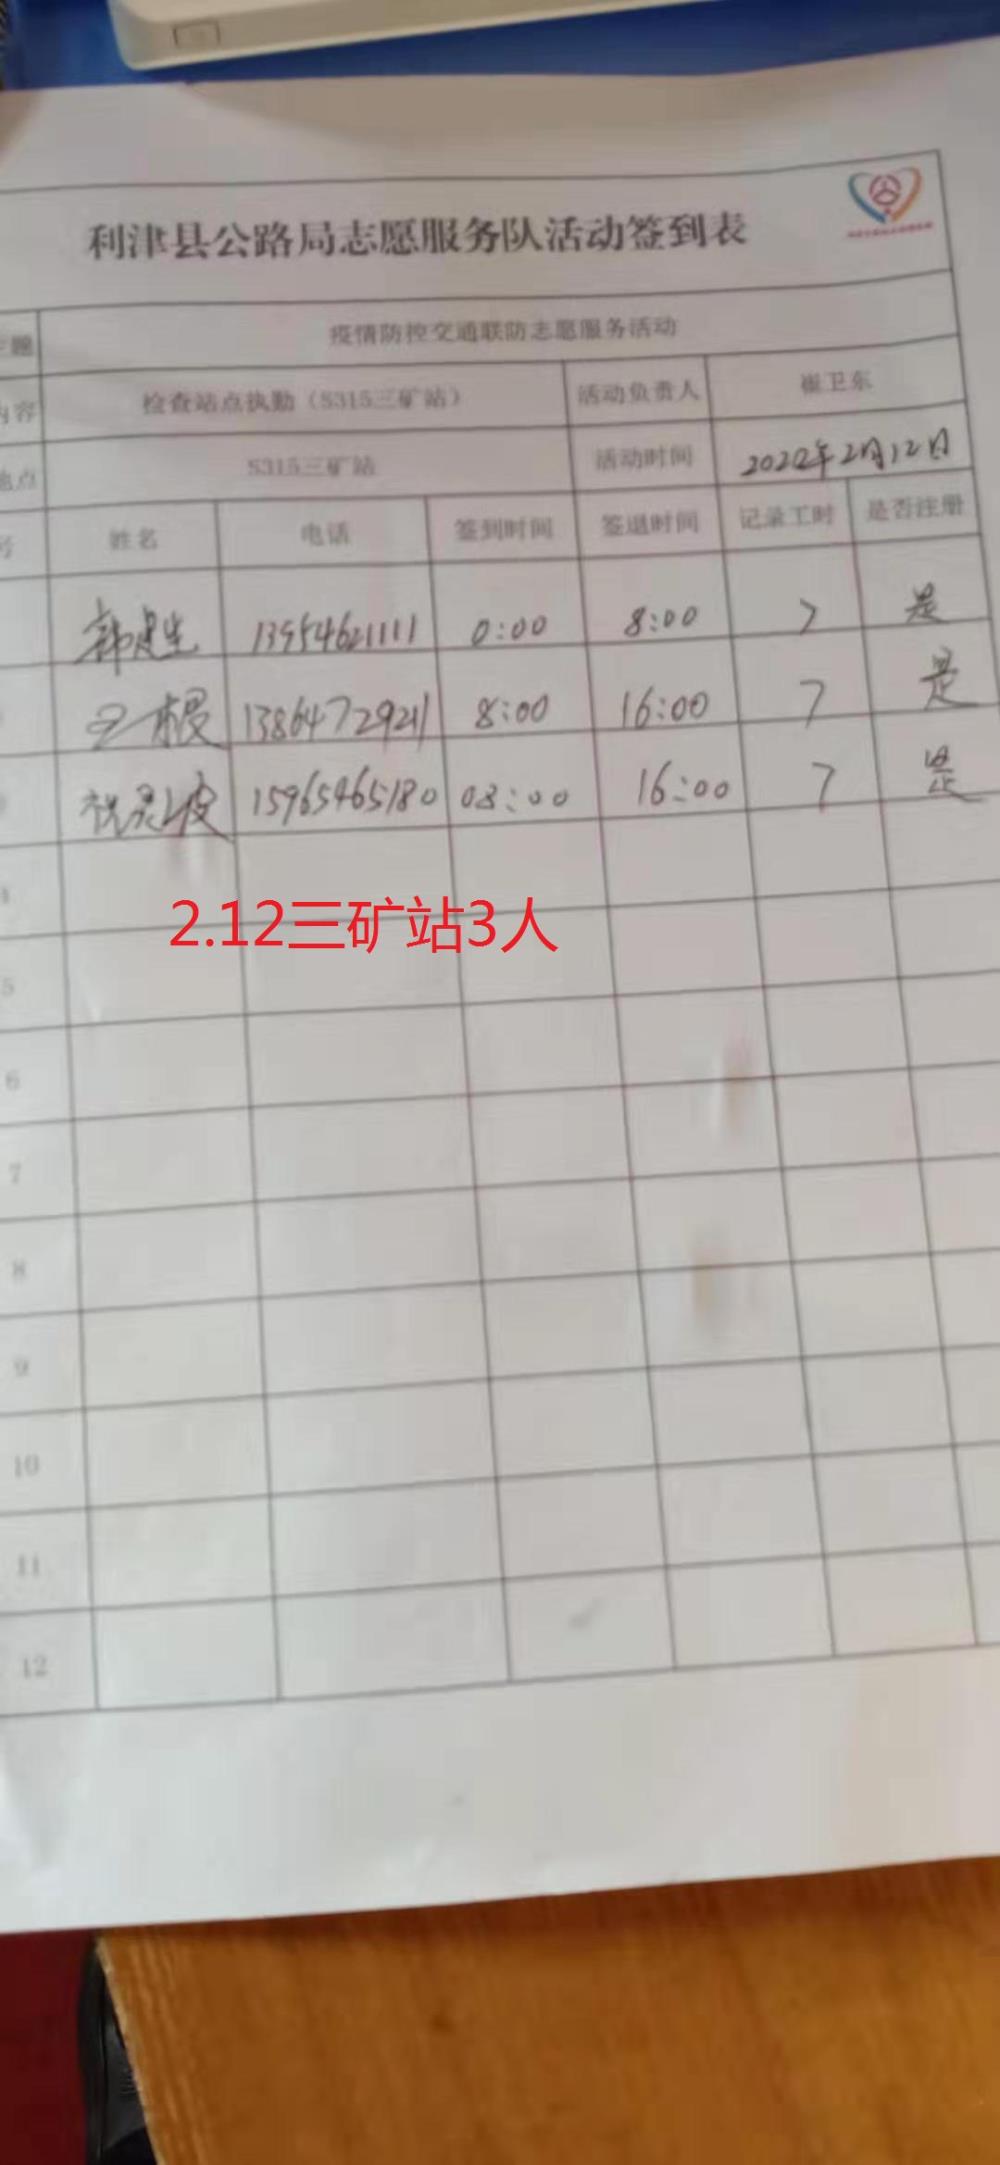 利津县公路局志愿服务队活动签到表
主题 疫情防控交通联防志愿服务活动
内容 检查站点执勤（S315三矿站） 活动负责人 崔卫东
地点 S315三矿站 活动时间 2022年2月12日
号 姓名 电话 签到时间 签退时间 记录工时 是否注册
13954621111 0:00 8:00 7 是
13864772921 8:00 16:00 7 是
15965465180 08:00 16:00 7 是
2.12三矿站3人
4
5
6
7
8
9
10
11
12